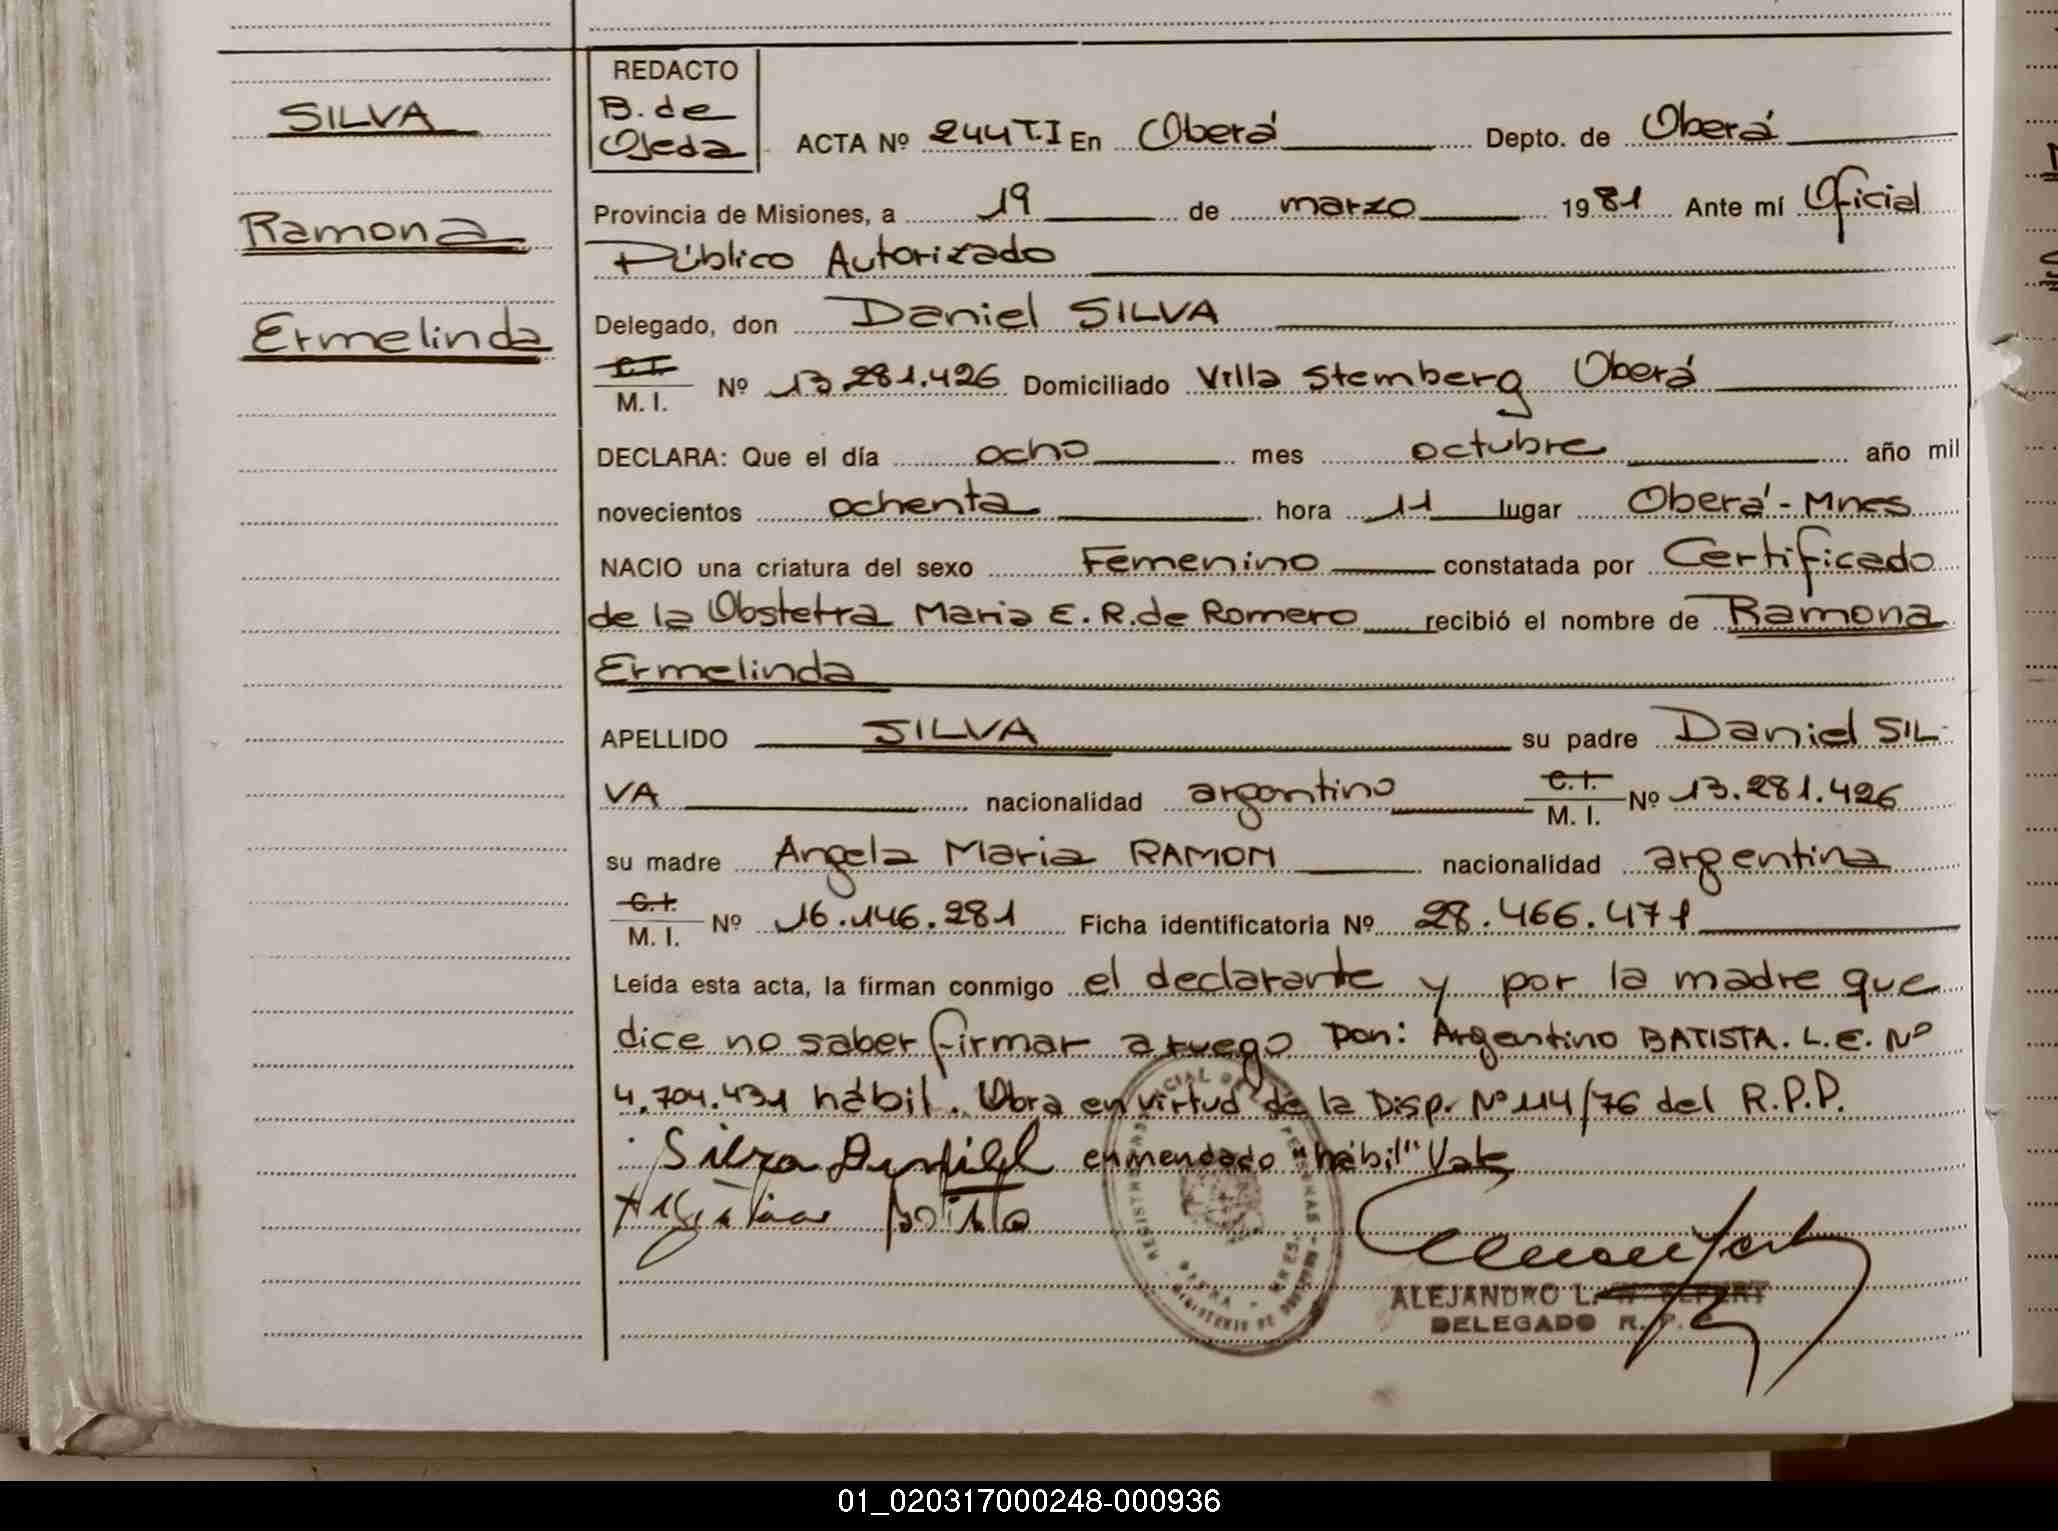 SILVA
Ramona
Ermelinda
REDACTO
B. de
Ojeda
ACTA Nº 244 T.I En Oberá Depto. de Oberá
Provincia de Misiones, a 19 de marzo 1981 Ante mí Oficial
Público Autorizado
Delegado, don Daniel SILVA
C.I.
M. I. Nº 13.281.426 Domiciliado Villa Stemberg Oberá
DECLARA: Que el día ocho mes octubre año mil
novecientos ochenta hora 11 lugar Oberá - Mnes
NACIO una criatura del sexo Femenino constatada por Certificado
de la Obstetra Maria E. R. de Romero recibió el nombre de Ramona
Ermelinda
APELLIDO SILVA su padre Daniel SIL-
VA nacionalidad argentino C.I.
M. I. Nº 13.281.426
su madre Angela Maria RAMON nacionalidad argentina
C.I.
M. I. Nº 16.146.281 Ficha identificatoria Nº 28.466.471
Leída esta acta, la firman conmigo el declarante y por la madre que
dice no saber firmar a ruego Don: Argentino BATISTA. L.E. Nº
4.704.431 hábil. Obra en virtud de la Disp. Nº 114/76 del R.P.P.
Silva Daniel enmendado "hábil" Vale
ALEJANDRO L.
DELEGADO R. P.
01_020317000248-000936